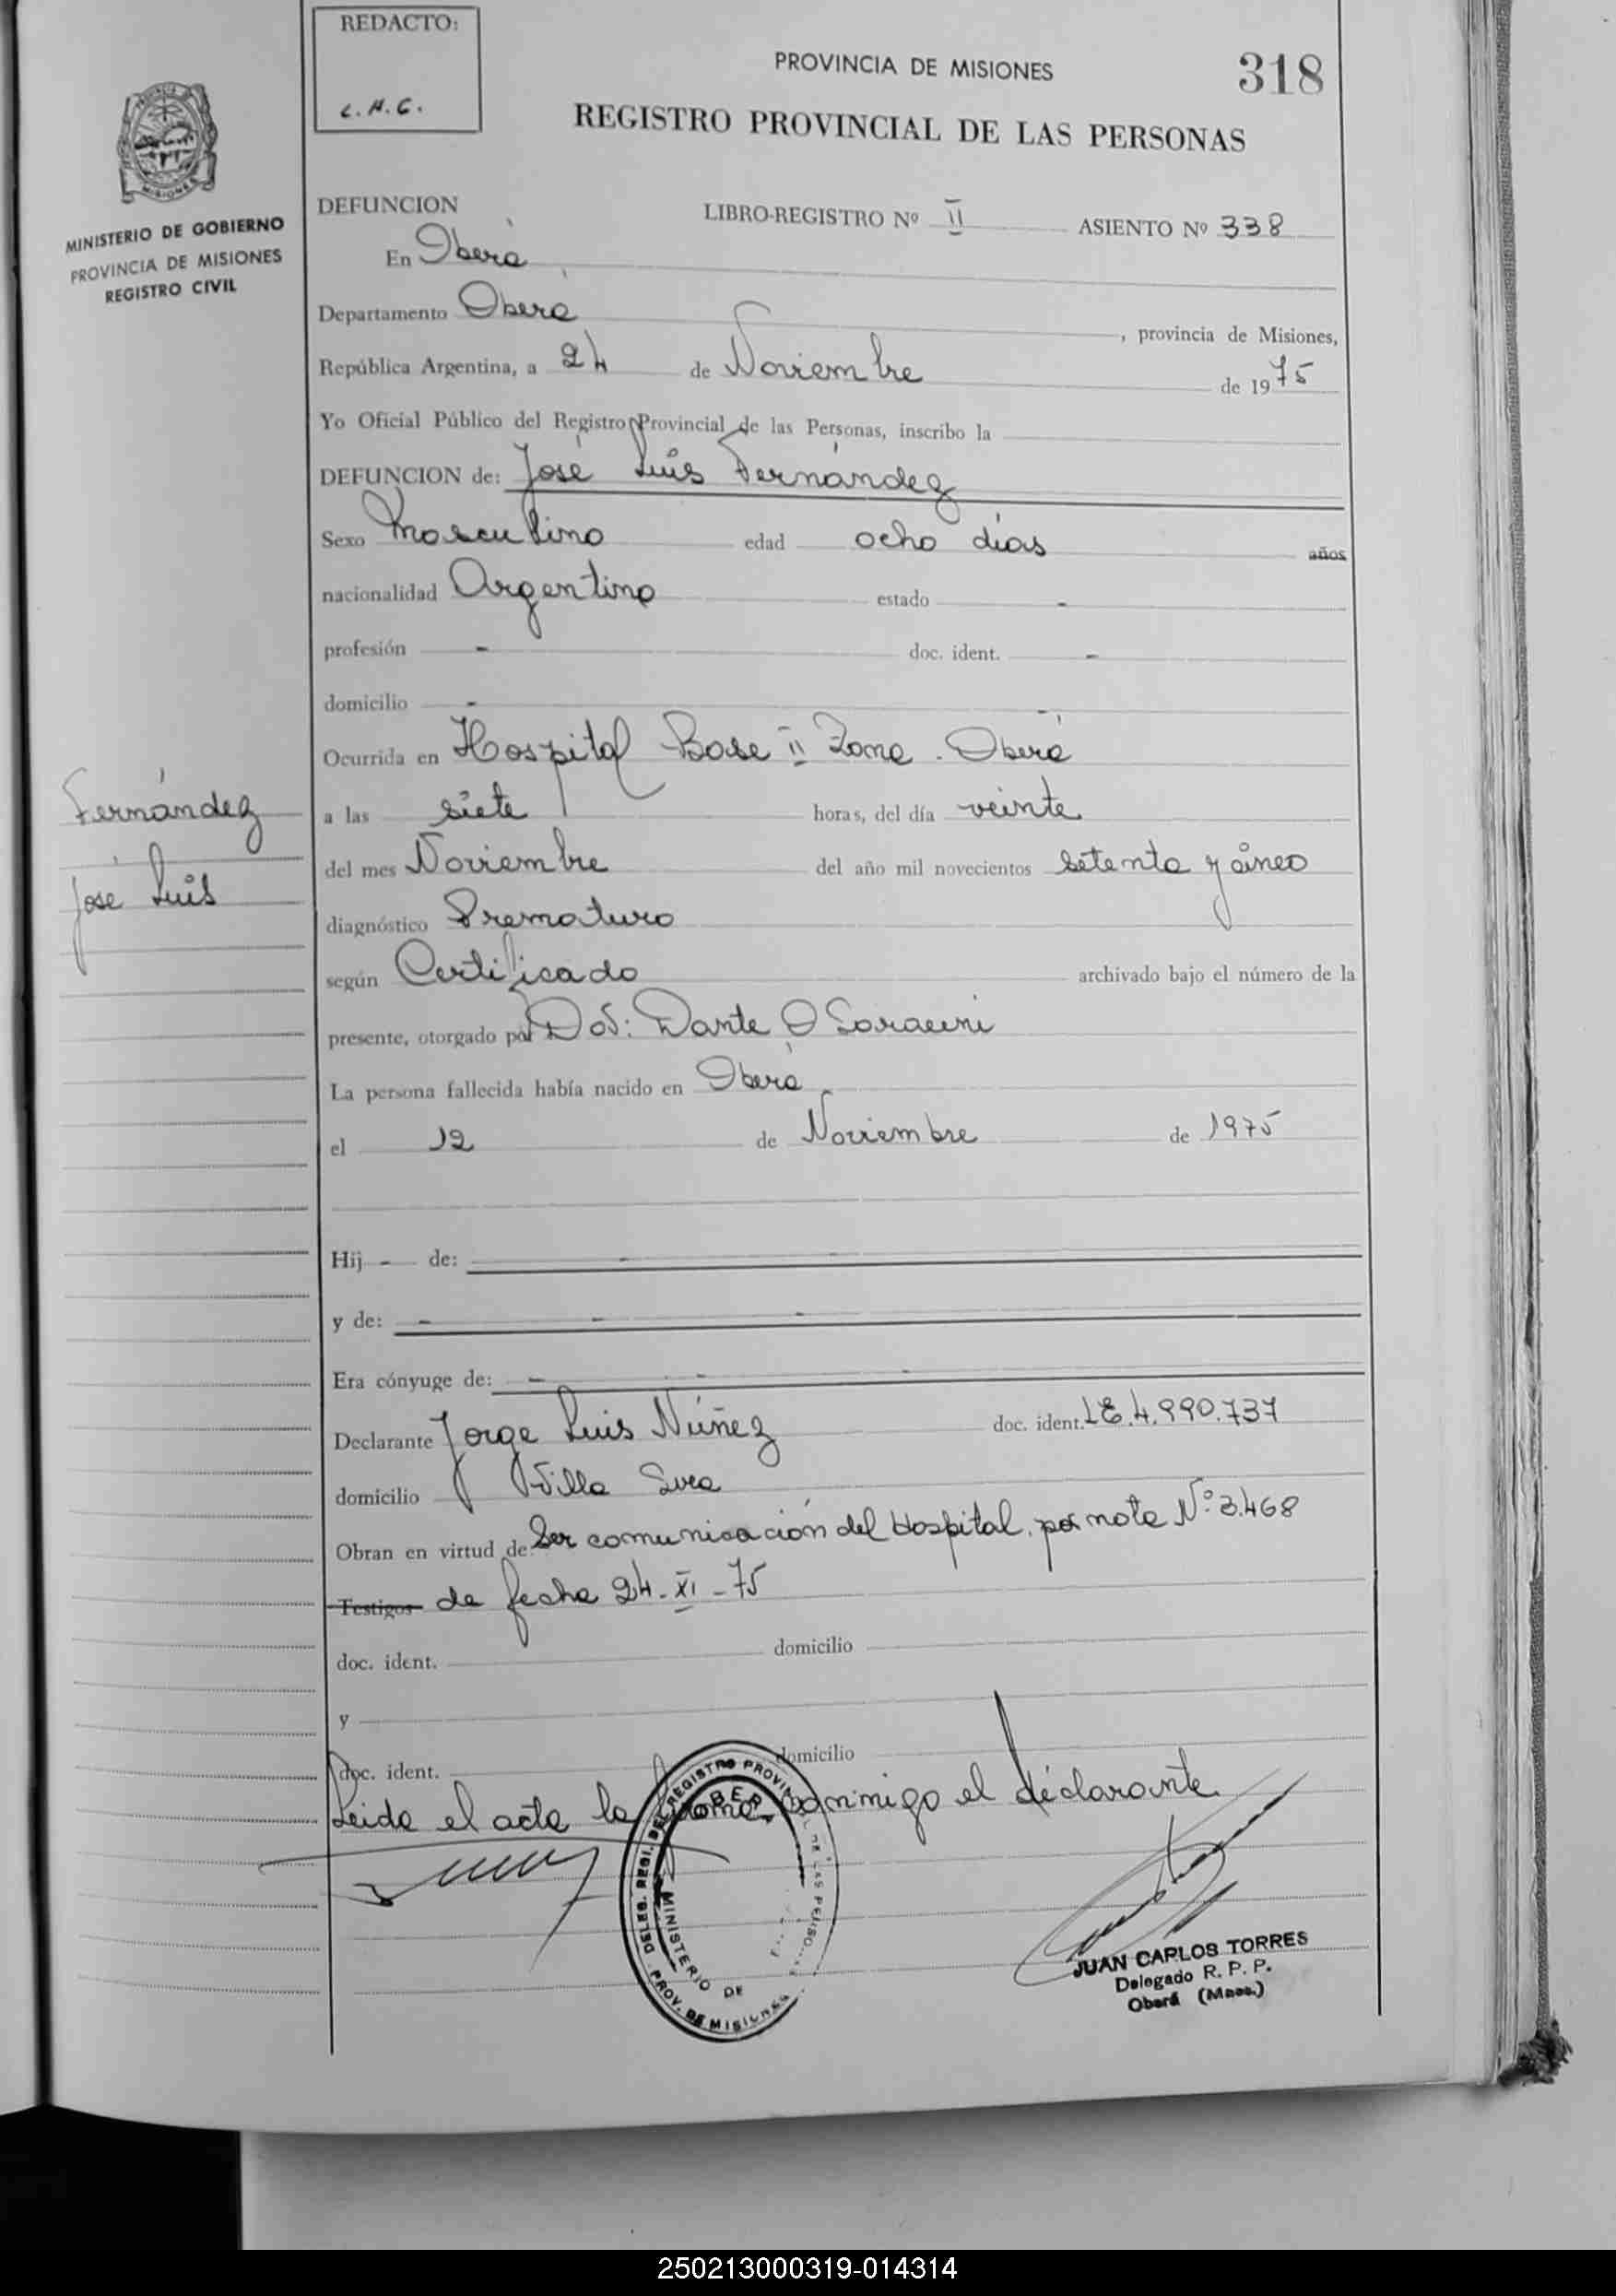 REDACTO:
L.H.G.
PROVINCIA DE MISIONES
318
REGISTRO PROVINCIAL DE LAS PERSONAS
MINISTERIO DE GOBIERNO
PROVINCIA DE MISIONES
REGISTRO CIVIL
DEFUNCION LIBRO-REGISTRO Nº II ASIENTO Nº 338
En Oberá
Departamento Oberá, provincia de Misiones,
República Argentina, a 24 de Noviembre de 1975
Yo Oficial Público del Registro Provincial de las Personas, inscribo la
DEFUNCION de: José Luis Fernández
Sexo Masculino edad ocho días años
nacionalidad Argentina estado -
profesión - doc. ident. -
domicilio - -
Ocurrida en Hospital Base II Zona. Oberá
Fernández
José Luis
a las siete horas, del día veinte
del mes Noviembre del año mil novecientos setenta y cinco
diagnóstico Prematuro
según Certificado archivado bajo el número de la
presente, otorgado por Dor: Dante O Saraceni
La persona fallecida había nacido en Oberá
el 12 de Noviembre de 1975
Hij - de: -
y de: - - -
Era cónyuge de: - - -
Declarante Jorge Luis Núñez doc. ident. LE.4.990.737
domicilio Villa Svea
Obran en virtud de: Ser comunicación del Hospital, por nota Nº 3.468
Testigos de fecha 24-XI-75
doc. ident. domicilio
y
doc. ident. domicilio
Leida el acta la firma conmigo el declarante
DELEG. REGI. DEL REGISTRO PROVINCIAL DE LAS PERSO
OBERA
MINISTERIO DE
PROV. DE MISIONES
JUAN CARLOS TORRES
Delegado R. P. P.
Oberá (Mnes.)
250213000319-014314